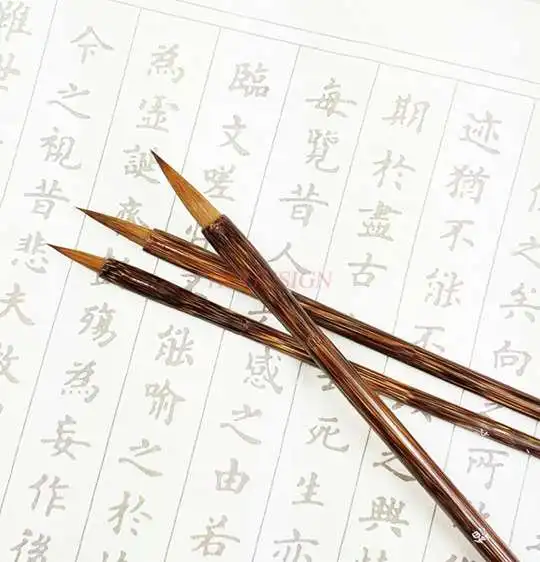 之矣向之所
迹猶不能不之興
期於盡古死生亦
每覽昔人感之由若
臨文嗟能喻之於
為虛誕殤為妄作後
今之視昔悲夫故
雖世